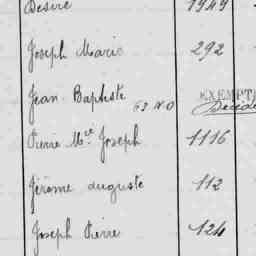 Désiré 1949
Joseph Marie 292
Jean Baptiste 63 N.O EXEMPT
Pierre Mie Joseph 1116
Jérôme Auguste 112
Joseph Pierre 124